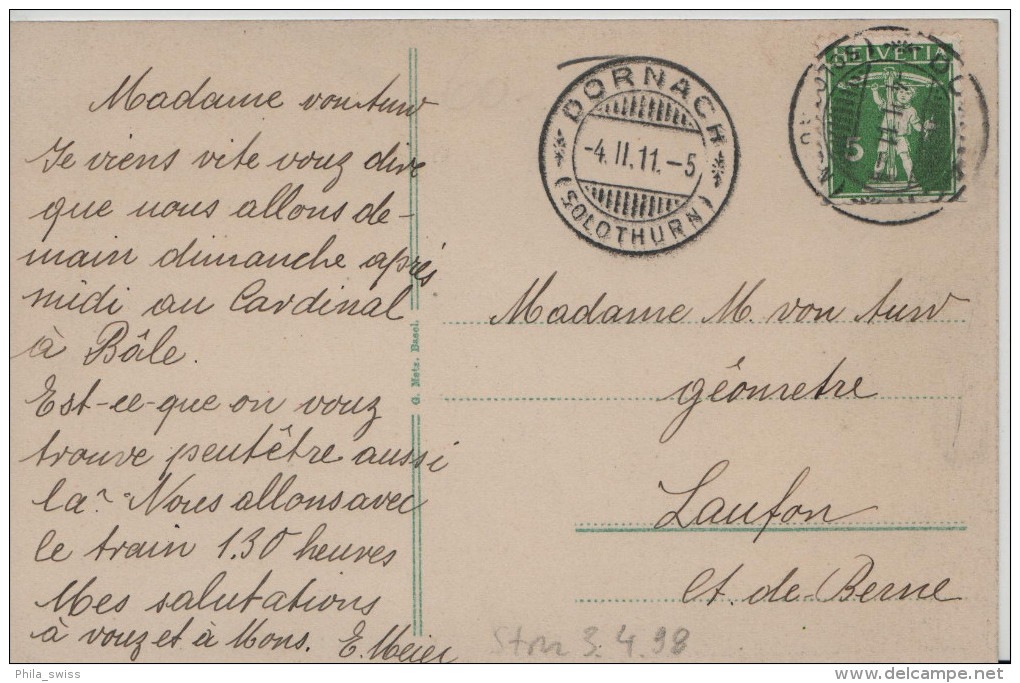 Madame von Auw
Je viens vite vouz dire
que nous allons de-
main dimanche après
midi au Cardinal
à Bâle.
Est-ce-que on vouz
trouve peutêtre aussi
la? Nous allons avec
le train 1.30 heures
Mes salutations
à vouz et à Mons. E. Meier
G. Metz, Basel.
DORNACH
-4.II.11.-5
(SOLOTHURN)
HELVETIA
5
Madame M. von Auw
géometre
Laufon
Ct. de Berne
3.4.98
Phila_swiss
delcampe.net